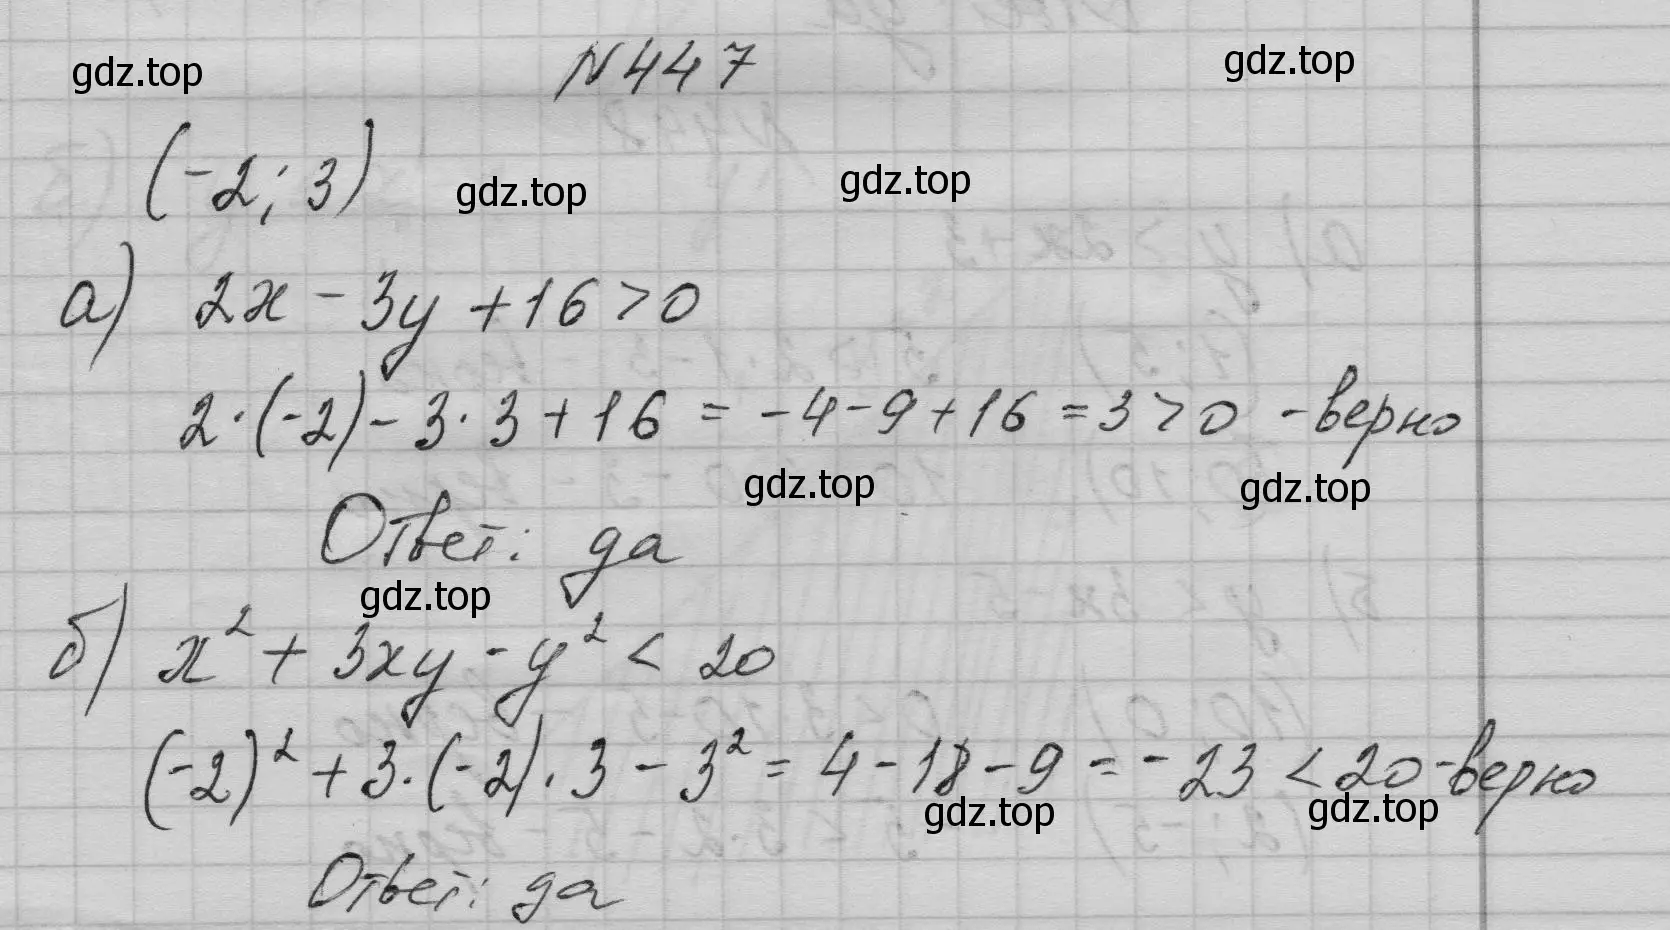 gdz.top №447 gdz.top
(-2; 3) gdz.top gdz.top
а) 2x - 3y + 16 > 0
2·(-2) - 3·3 + 16 = -4 - 9 + 16 = 3 > 0 - верно
gdz.top gdz.top
Ответ: да
gdz.top
б) x² + 3xy - y² < 20
(-2)² + 3·(-2)·3 - 3² = 4 - 18 - 9 = -23 < 20 - верно
gdz.top gdz.top
Ответ: да